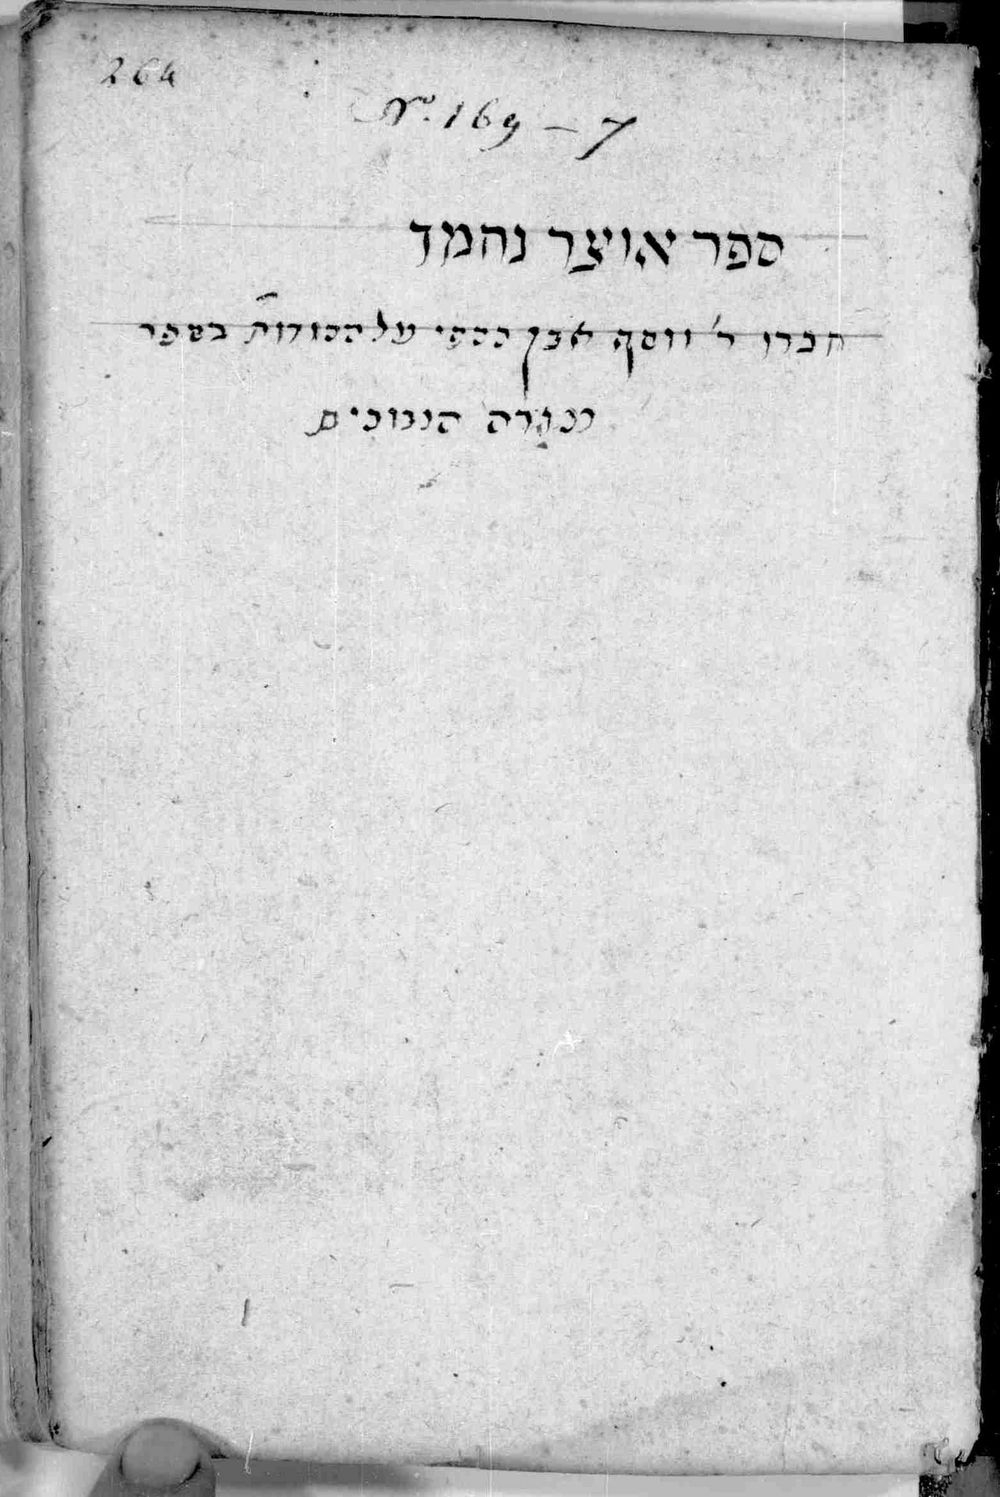 264
No. 169 - 7
ספר אוצר נחמד
חברו ר' יוסף אבן כספי על הסודות בספר
מורה הנבוכים